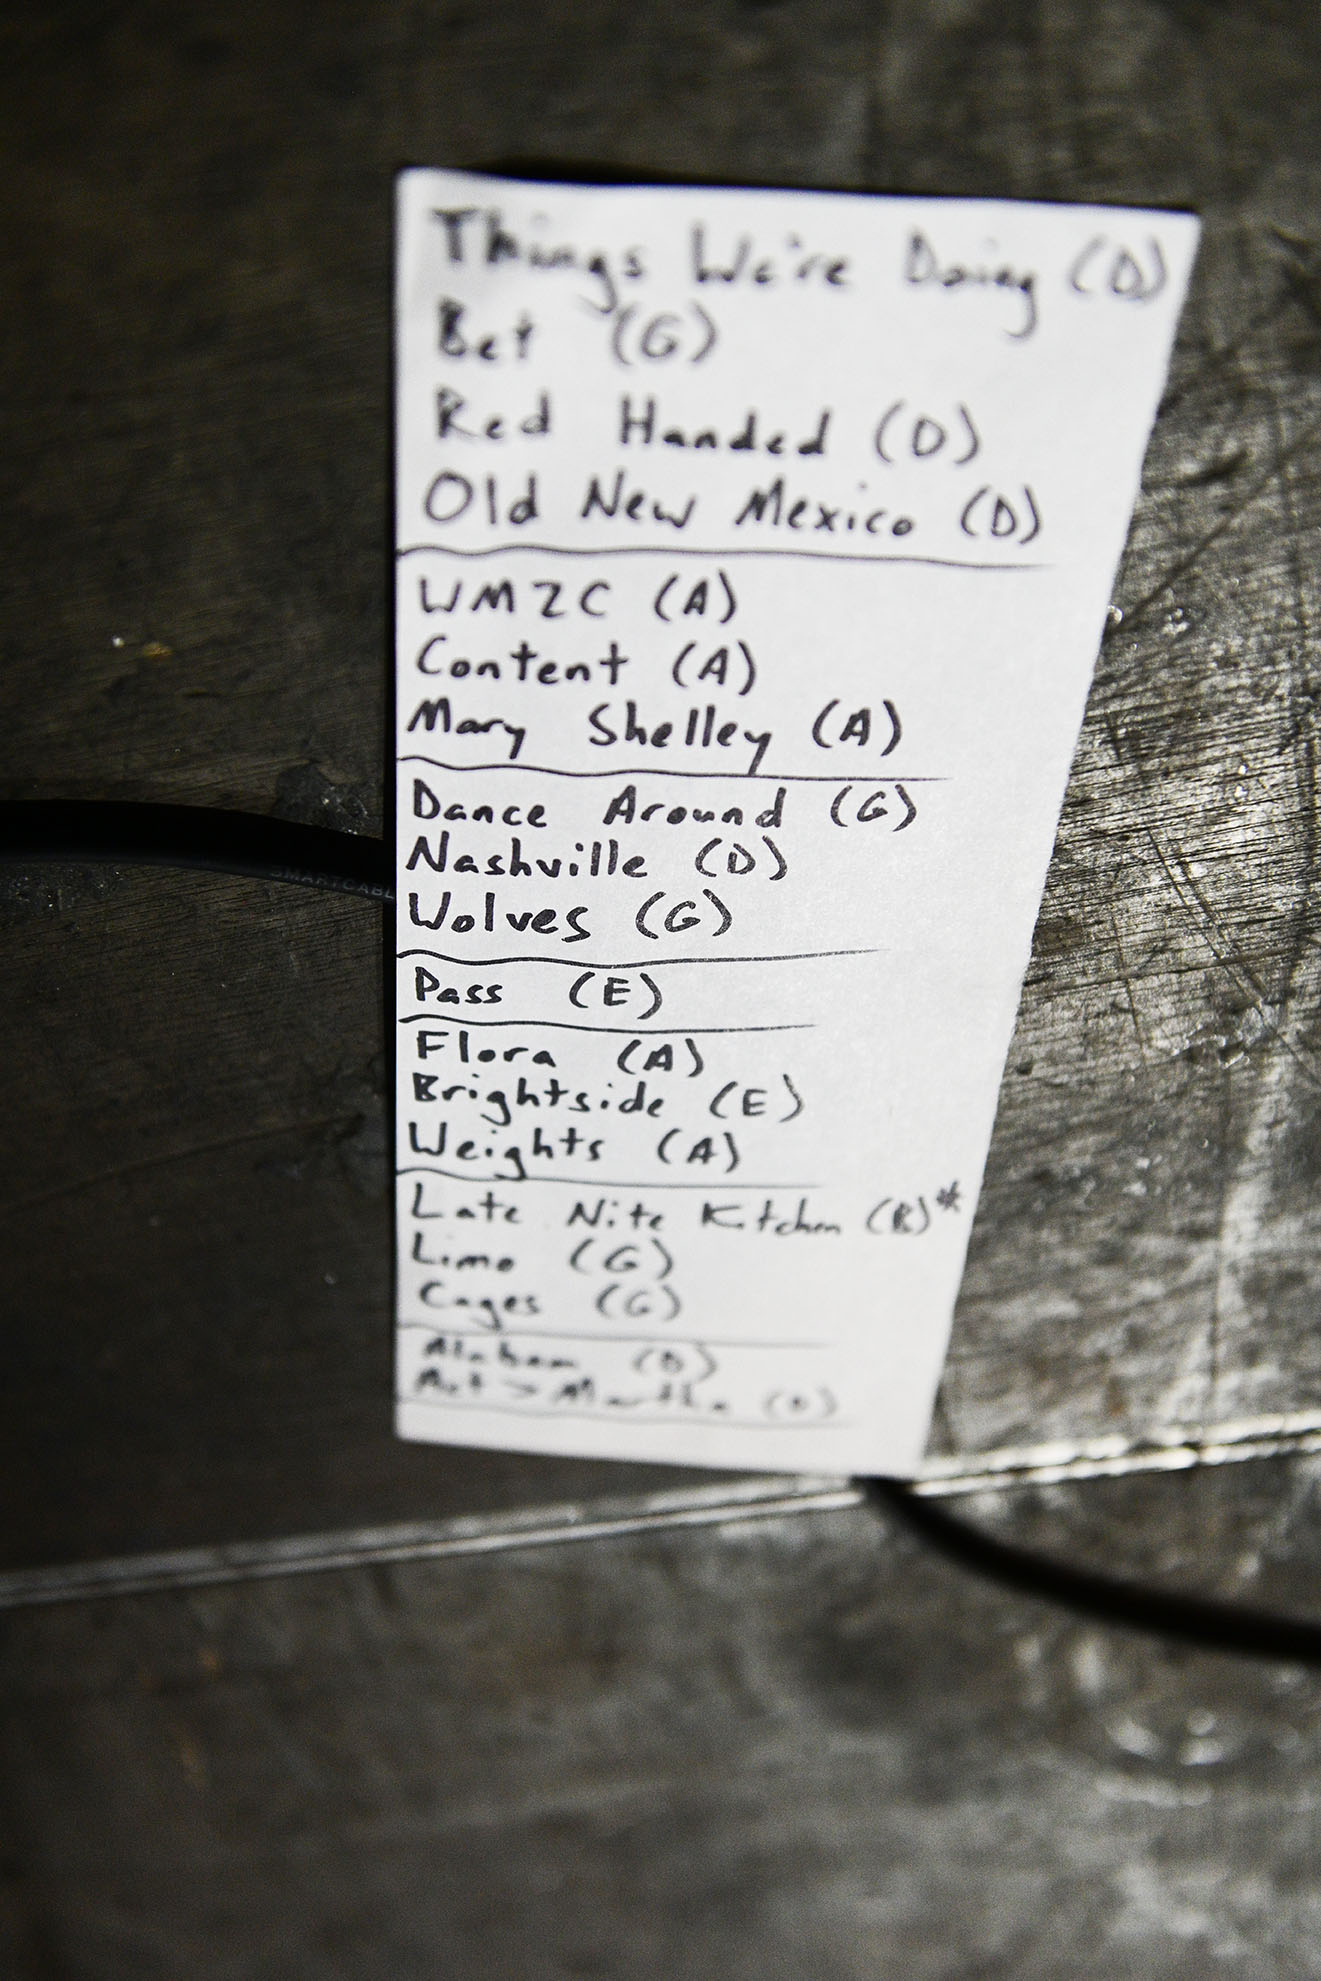 Things We're Doing (D)
Bet (G)
Red Handed (D)
Old New Mexico (D)
WMZC (A)
Content (A)
Mary Shelley (A)
Dance Around (G)
Nashville (D)
SMARTCABL
Wolves (G)
Pass (E)
Flora (A)
Brightside (E)
Weights (A)
Late Nite Kitchen (B)*
Limo (G)
Cages (G)
Martha